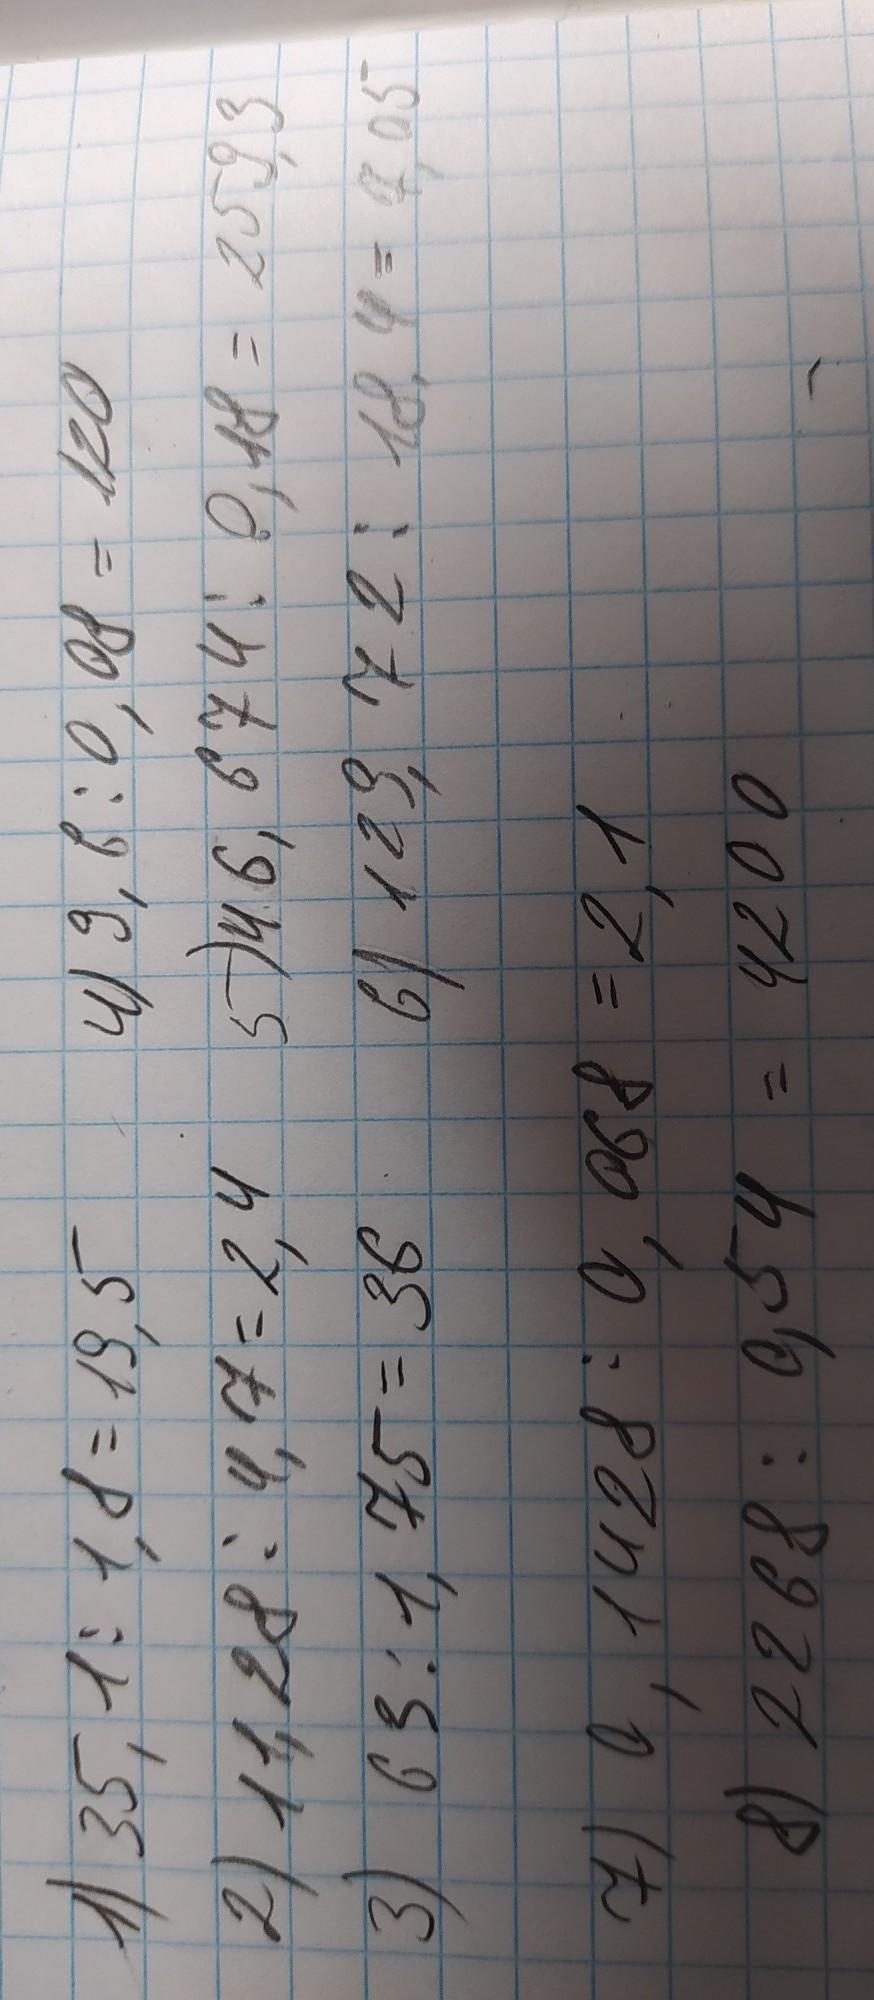 1) 35,1 : 1,8 = 19,5 4) 9,6 : 0,08 = 120
2) 11,28 : 4,7 = 2,4 5) 46,674 : 0,18 = 259,3
3) 63 : 1,75 = 36 6) 129,72 : 18,4 = 7,05
7) 0,1428 : 0,068 = 2,1
8) 2268 : 0,54 = 4200